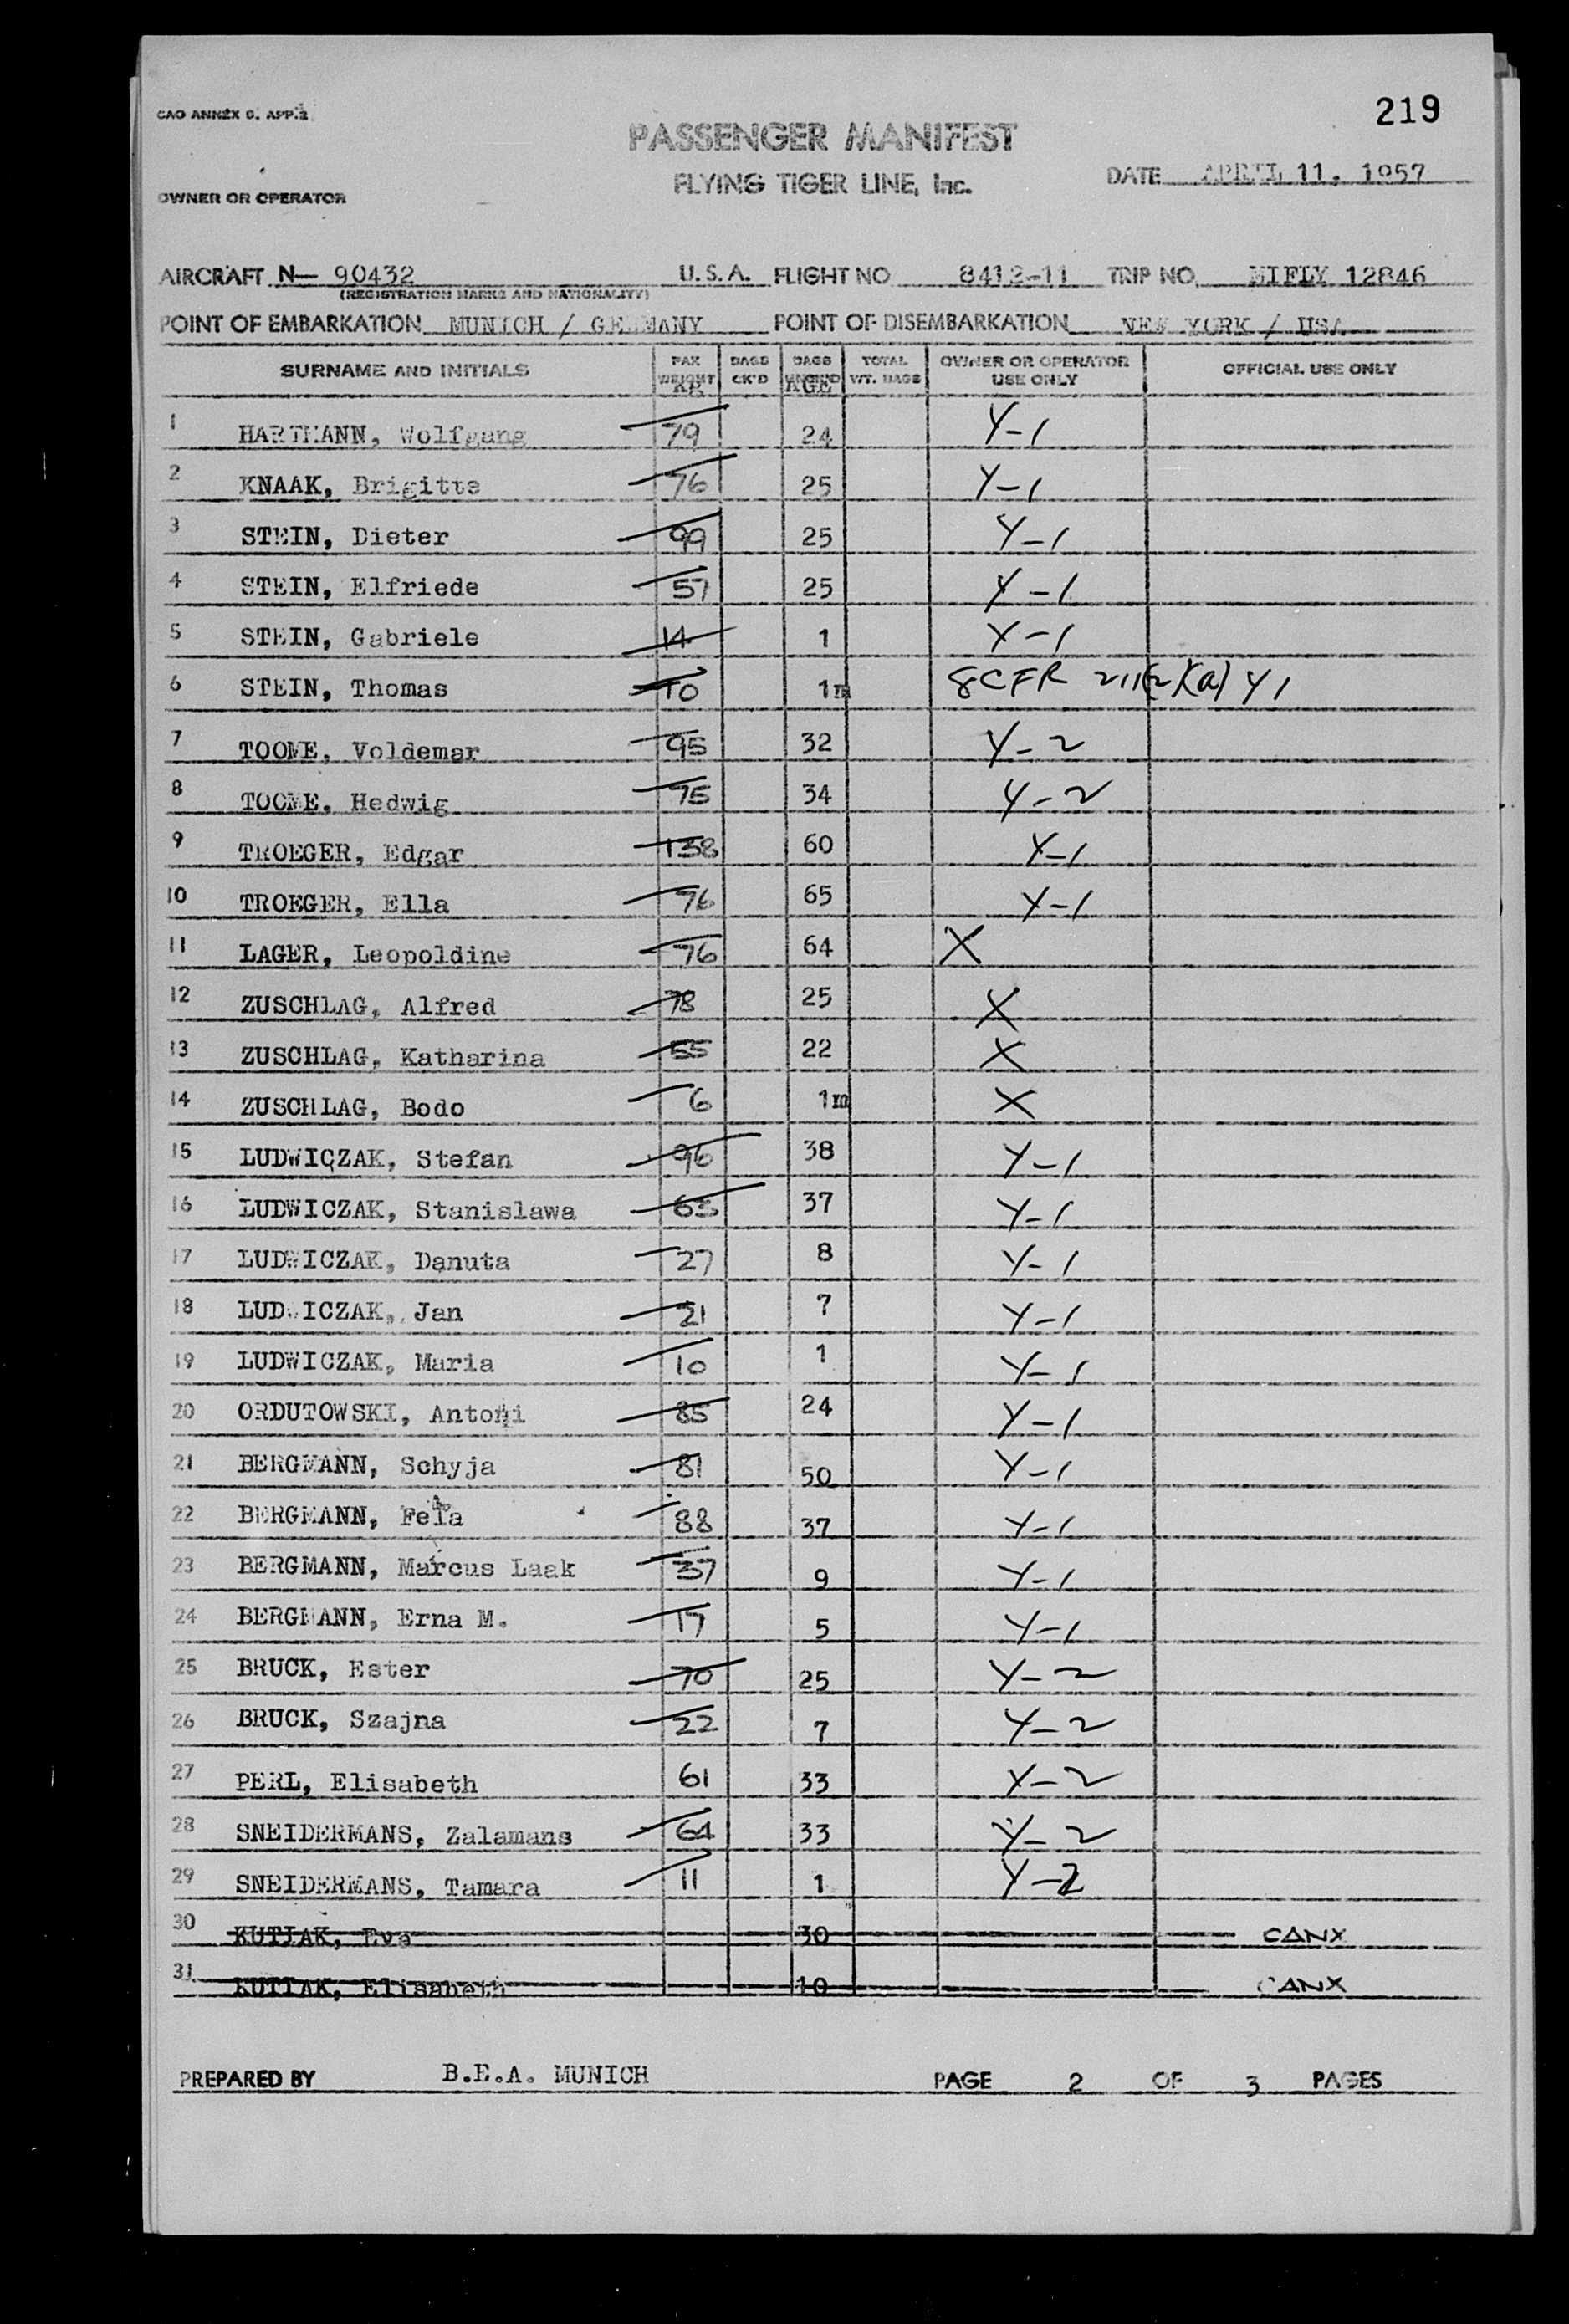 219
CAO ANNEX 9. APP. 2
PASSENGER MANIFEST
FLYING TIGER LINE, Inc.
DATE APRIL 11, 1957
OWNER OR OPERATOR
AIRCRAFT N— 90432 U.S.A. FLIGHT NO 8412-11 TRIP NO. MIFLY 12846
(REGISTRATION MARKS AND NATIONALITY)
POINT OF EMBARKATION MUNICH / GERMANY POINT OF DISEMBARKATION NEW YORK / USA
SURNAME AND INITIALS PAX WEIGHT BAGS CK'D BAGS AGE TOTAL WT. BAGS OWNER OR OPERATOR USE ONLY OFFICIAL USE ONLY
1 HARTMANN, Wolfgang 79 24 Y-1
2 KNAAK, Brigitte 76 25 Y-1
3 STEIN, Dieter 99 25 Y-1
4 STEIN, Elfriede 57 25 Y-1
5 STEIN, Gabriele 14 1 Y-1
6 STEIN, Thomas 10 1m 8CFR 211(2)(a) Y1
7 TOOME, Voldemar 95 32 Y-2
8 TOOME, Hedwig 75 34 Y-2
9 TROEGER, Edgar 138 60 Y-1
10 TROEGER, Ella 76 65 Y-1
11 LAGER, Leopoldine 76 64 X
12 ZUSCHLAG, Alfred 78 25 X
13 ZUSCHLAG, Katharina 55 22 X
14 ZUSCHLAG, Bodo 6 1m X
15 LUDWICZAK, Stefan 96 38 Y-1
16 LUDWICZAK, Stanislawa 63 37 Y-1
17 LUDWICZAK, Danuta 27 8 Y-1
18 LUDWICZAK, Jan 21 7 Y-1
19 LUDWICZAK, Maria 10 1 Y-1
20 ORDUTOWSKI, Antoni 85 24 Y-1
21 BERGMANN, Schyja 81 50 Y-1
22 BERGMANN, Fela 88 37 Y-1
23 BERGMANN, Marcus Laak 37 9 Y-1
24 BERGMANN, Erna M. 17 5 Y-1
25 BRUCK, Ester 70 25 Y-2
26 BRUCK, Szajna 22 7 Y-2
27 PERL, Elisabeth 61 33 Y-2
28 SNEIDERMANS, Zalamans 64 33 Y-2
29 SNEIDERMANS, Tamara 11 1 Y-2
30 KUTIAK, Eva 30 CANX
31 KUTIAK, Elisabeth 10 CANX
PREPARED BY B.E.A. MUNICH PAGE 2 OF 3 PAGES